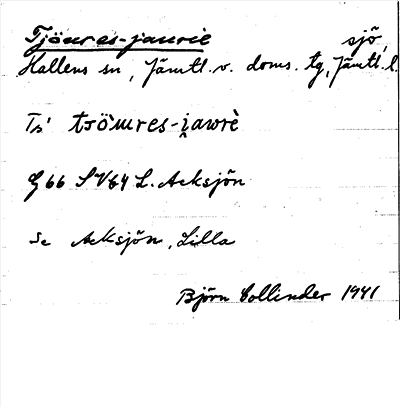 Tjöures-jaurie sjö,
Hallens sn, Jämtl. v. doms. tg, Jämtl. l.
Ts' tšöu̯res-i̯awrè
G66 SV64 L. Acksjön
Se Acksjön, Lilla
Björn Collinder 1941